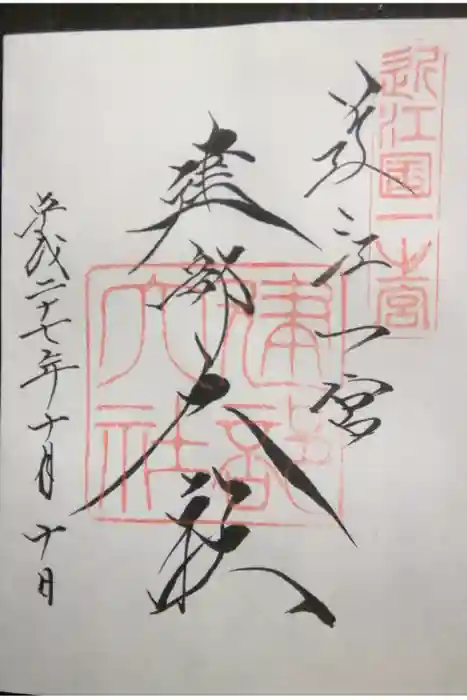 近江国一之宮
近江一宮
建部大社
建部大社
平成二十七年十月十日